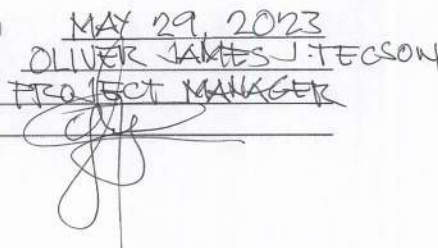 MAY 29, 2023
OLIVER JAMES J. TECSON
PROJECT MANAGER